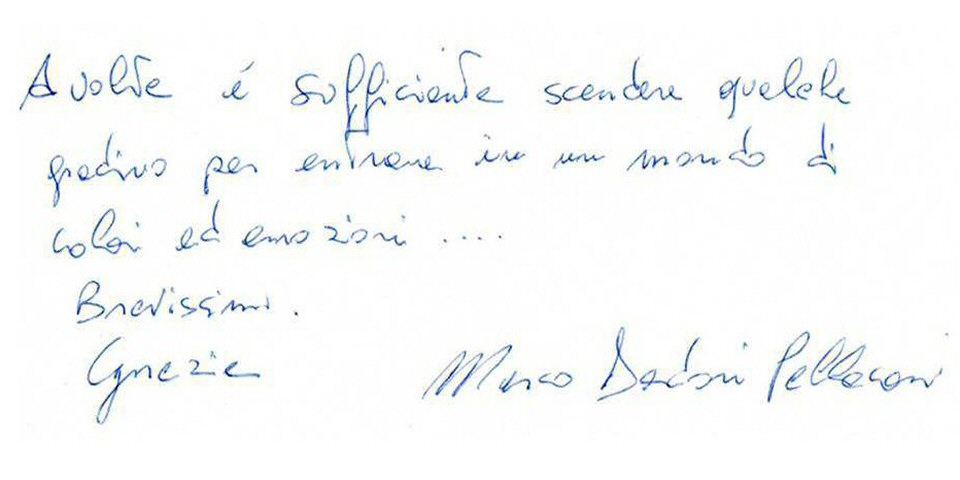 A volte é sufficiente scendere qualche
gradino per entrare in un mondo di
colori ed emozioni ....
Bravissimi.
Grazie Marco Pellaconi